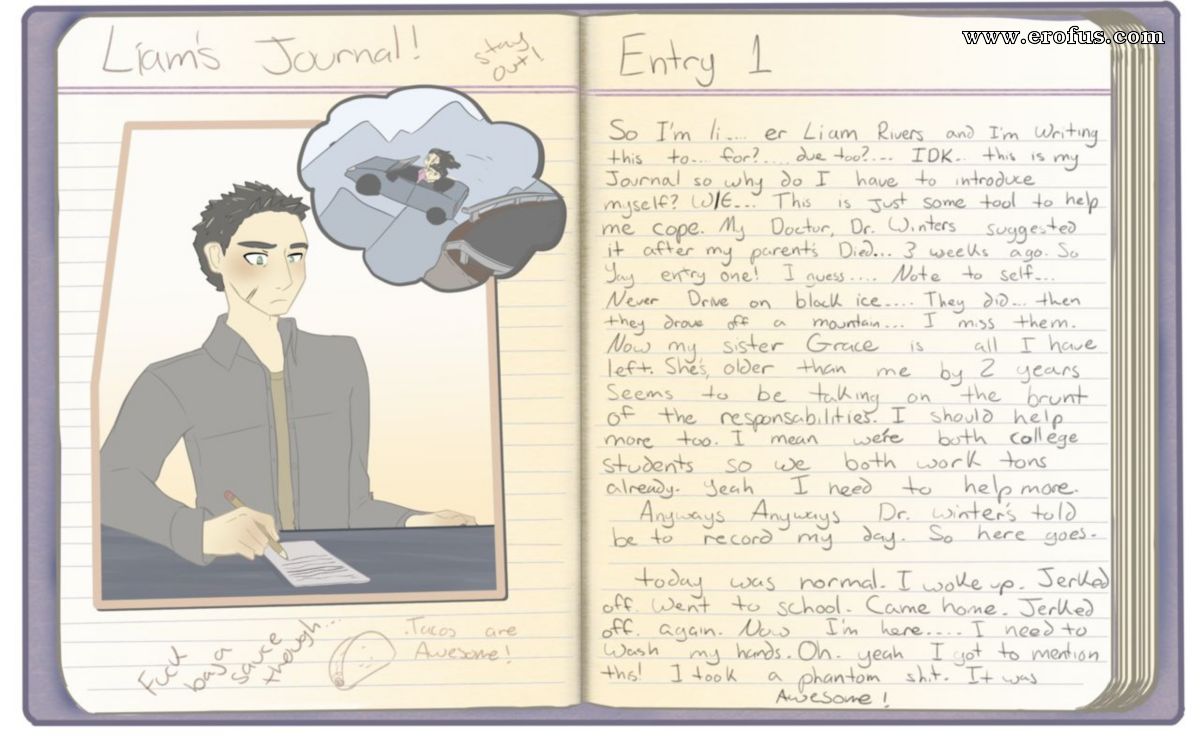 Liam's Journal!
stay
out!
Fuck
baja
sauce
though...
.Tacos are
Awesome!
www.erofus.com
Entry 1
So I'm li.... er Liam Rivers and I'm writing
this to... for?.... due too?.... IDK.. this is my
Journal so why do I have to introduce
myself? W/E.... This is Just some tool to help
me cope. My Doctor, Dr. Winters suggested
it after my parent's Died... 3 weeks ago. So
Yay entry one! I guess.... Note to self....
Never Drive on black ice.... They did... then
they drove off a mountain... I miss them.
Now my sister Grace is all I have
left. She's, older than me by 2 years
Seems to be taking on the brunt
of the responsabilities. I should help
more too. I mean we're both college
students so we both work tons
already. Yeah I need to help more.
Anyways Anyways Dr. Winter's told
be to record my day. So here goes.
today was normal. I woke up. Jerked
off. Went to school. Came home. Jerked
off. again. Now I'm here.... I need to
Wash my hands. Oh. yeah I got to mention
this! I took a phantom shit. It was
Awesome!